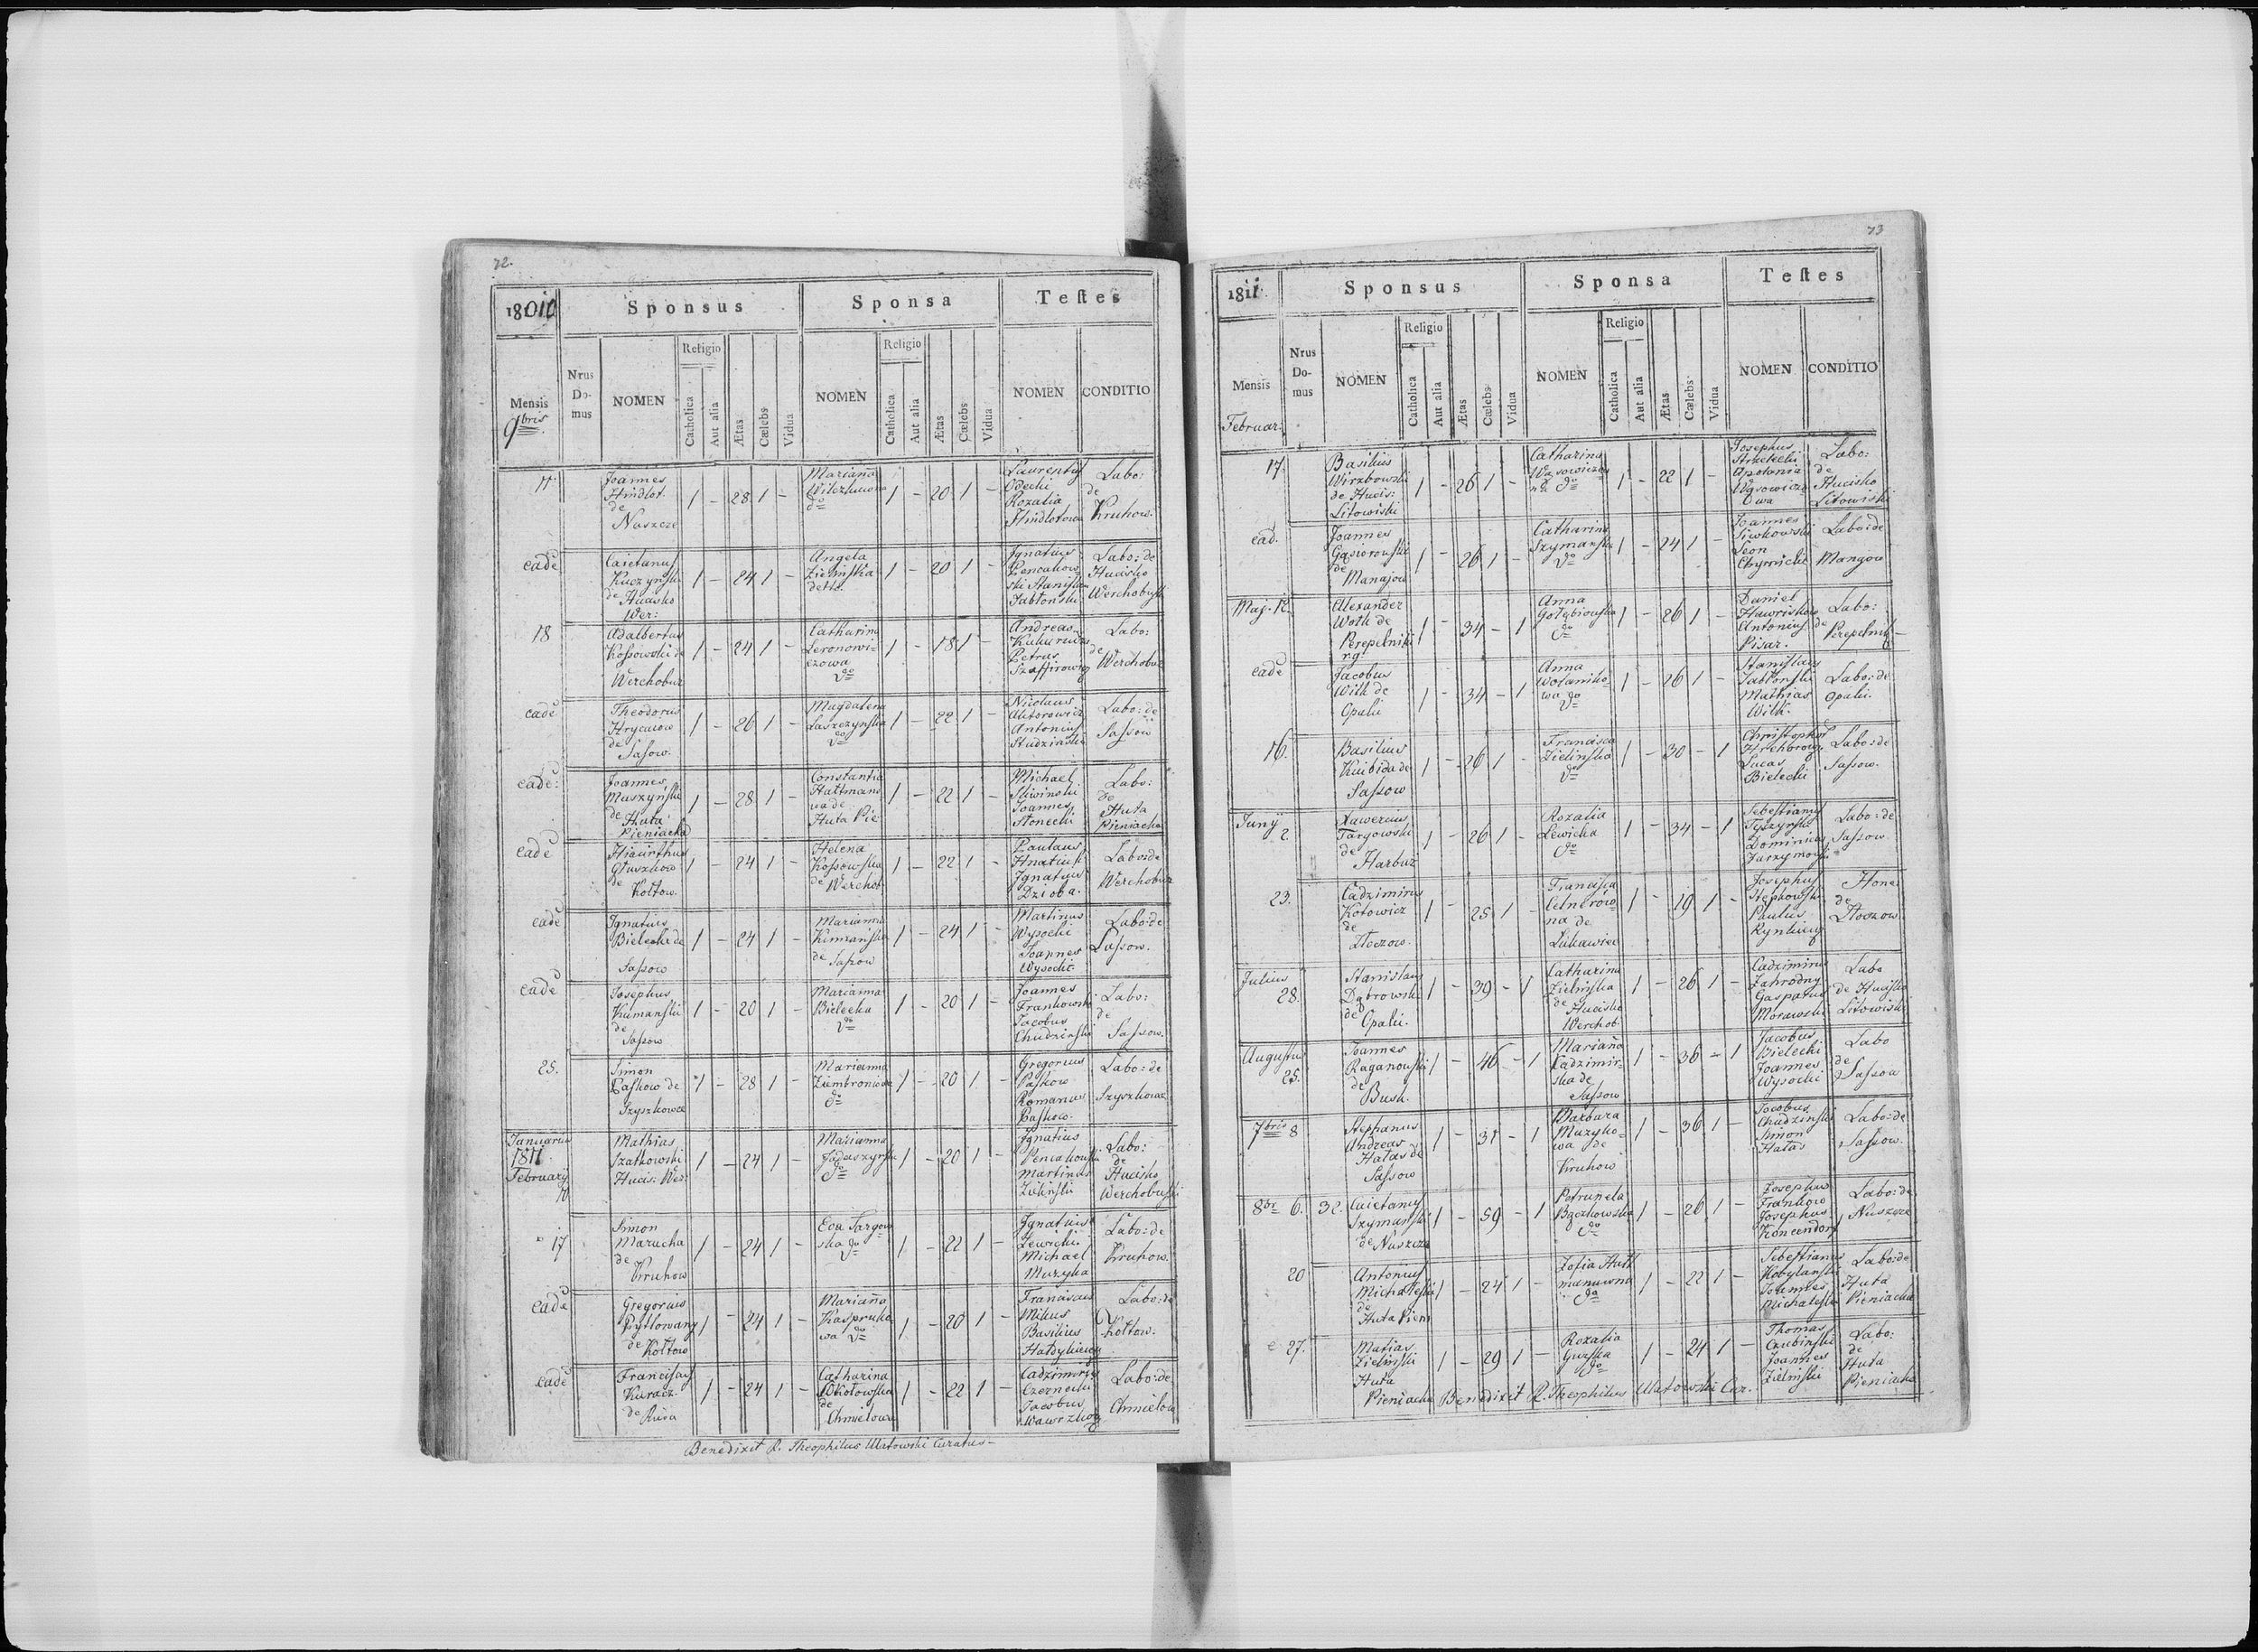 72.
18010
Sponsus
Sponsa
Testes
Mensis
9bris
Nrus
Do-
mus
NOMEN
Religio
Catholica
Aut alia
Ætas
Cælebs
Vidua
NOMEN
Religio
Catholica
Aut alia
Ætas
Cælebs
Vidua
NOMEN
CONDITIO
11
Joannes
Hindlot.
de
Nuszcze
1 - 28 1 -
Marianna
do
1 - 20 1 -
Laurentius
Odecki
Rozalia
Hindlotowa
Labo:
de
Kruhow.
eade
Caietanus
Kuczyński
de Hucisko
Wer:
1 - 24 1 -
Angela
Zielinska
detto.
1 - 20 1 -
Ignatius
Pencakow
ski Stanislau
Jabłonski
Labo: de
Hucisko
Werchobusk
18
Adalbertus
Kossowski de
Werchobuz
1 - 24 1 -
Catharina
Leronowi-
czowa
do
1 - 18 1 -
Andreas
Petrus
Szaffirowicz
Labo:
de
Werchobuz
eade
Theodorus
Hrycaiow
de
Sasow.
1 - 26 1 -
Magdalena
Laszczynska
do
1 - 22 1 -
Nicolaus
Antonius
Studzinski
Labo: de
Sassow
eade:
Joannes
Muszyński
de Huta
Pieniacka
1 - 28 1 -
Constantia
Hattmano
wa de
Huta Pie
1 - 22 1 -
Michael
Sliwinski
Joannes
Słonecki
Labo:
de
Huta
Pieniacka
eade
Hiacinthus
Głuszkow
de
Kołtow.
1 - 24 1 -
Helena
Kossowska
de Werchob.
1 - 22 1 -
Paulaus
Ignatius
Dzioba.
Labo: de
Werchobuz
eade
Ignatius
Bielecki de
Sassow
1 - 24 1 -
Marianna
Kumanska
de Sassow
1 - 24 1 -
Martinus
Wysocki
Joannes
Wysocki
Labo: de
Sassow.
eade
Josephus
Kumanski
de
Sassow
1 - 20 1 -
Marianna
Bielecka
do
1 - 20 1 -
Joannes
Frankowski
Jacobus
Chudzinski
Labo:
de
Sassow.
25.
Simon
Paskow de
Szyszkowce
1 - 28 1 -
Marianna
do
1 - 20 1 -
Gregorius
Paskow
Romanus
Paskow.
Labo: de
Szyszkowce
Januarius
1811.
February
10
Mathias
Szatkowski
Hucis: Wer:
1 - 24 1 -
Marianna
do
1 - 20 1 -
Ignatius
Pencakowski
Martinus
Zielinski
Labo:
de
Hucisko
Werchobuski
17
Simon
Marucha
de
Kruhow
1 - 24 1 -
Eva Targow
ska do
1 - 22 1 -
Ignatius
Lewicki
Michael
Muzyka
Labo: de
Kruhow.
Eade
Gregorius
Pytlowany
de
Kołtow
1 - 24 1 -
Marianna
Kaspruko
wa do
1 - 20 1 -
Franciscus
Mikus
Basilius
Labo: de
Kołtow.
eade
Franciscus
Kuracz.
de Ruda
1 - 24 1 -
Catharina
de
Chmielowa
1 - 22 1 -
Cadzimirus
Czernecki
Jacobus
Labo: de
Chmielowa
Benedixit R. Theophilus Ulatowski Curatus-
73
1811.
Sponsus
Sponsa
Testes
Mensis
Februar.
Nrus
Do-
mus
NOMEN
Religio
Catholica
Aut alia
Ætas
Cælebs
Vidua
NOMEN
Religio
Catholica
Aut alia
Ætas
Cælebs
Vidua
NOMEN
CONDITIO
17
Basilius
Wirzbowski
de Hucis:
Litowiski
1 - 26 1 -
Catharina
do
1 - 22 1 -
Josephus
Apolonia
Wąsowiczo
wa
Labo:
de
Hucisko
Litowiski
ead.
Joannes
Gąsiorowski
de
Manajow
1 - 26 1 -
Catharina
Szymanska
do
1 - 24 1 -
Joannes
Siwkowski
Leon
Labo: de
Mangow
Maj. 12.
Alexander
Wolk de
Perepelniki
1 - 34 - 1
Anna
Gołębiowska
do
1 - 26 1 -
Daniel
Antonius
Pisar.
Labo:
de
Perepelnik
eade
Jacobus
Wilk de
Opaki
1 - 34 - 1
Anna
wa do
1 - 26 1 -
Stanislaus
Jabłonski
Mathias
Wilk.
Labo: de
Opaki.
16.
Basilius
Kubida de
Sassow
1 - 26 1 -
Francisca
Zielinska
do
1 - 30 - 1
Christophor
Lucas
Bielecki
Labo: de
Sassow.
Junij
2.
Xawerius
Targowski
de
Harbuz
1 - 26 1 -
Rozalia
Lewicka
do
1 - 34 - 1
Sebestianus
Dominicus
Labo: de
Sassow.
23.
Cadzimirus
Kotowicz
de
Złoczow.
1 - 25 1 -
Francisca
Celnerow-
na de
Lukawiec
1 - 19 1 -
Josephus
Stepkowski
Paulus
Hone:
de
Złoczow
Julius
28.
Stanislaus
Dąbrowski
de Opaki.
1 - 39 - 1
Catharina
Zielinska
de Hucisko
Werchob.
1 - 26 1 -
Cadzimirus
Zahrodny
Gasparus
Morawski
Labo
de Hucisko
Litowiski
Augustus
25.
Joannes
Raganowski
de
Busk.
1 - 46 - 1
Marianna
Kadzimir-
ska de
Sassow
1 - 36 - 1
Jacobus
Bielecki
Joannes
Wysocki
Labo
de
Sassow
7bris 8
Stephanus
Andreas
Hałas de
Sassow
1 - 31 - 1
Barbara
Muzyko-
wa de
Kruhow
1 - 36 1 -
Jacobus
Chudzinski
Simon
Hałas
Labo: de
Sassow.
8br 6.
32.
Caietanus
Szymanski
de Nuszcze
1 - 59 - 1
Petrunela
Bączkowska
do
1 - 26 1 -
Josephus
Frankow
Josephus
Koncendorf
Labo: de
Nuszcze
20
Antonius
Michalski
de
Huta Pieni
1 - 24 1 -
Zofia Hatt
manuwna
do
1 - 22 1 -
Sebestianus
Kobylanski
Joannes
Michalski
Labo: de
Huta
Pieniacka
27.
Matias
Zielinski
Huta
Pieniacka
1 - 29 1 -
Rozalia
Gurska
do
1 - 24 1 -
Thomas
Czubinski
Joannes
Zielinski
Labo:
de
Huta
Pieniacka
Benedixit R. Theophilus Ulatowski Cur.